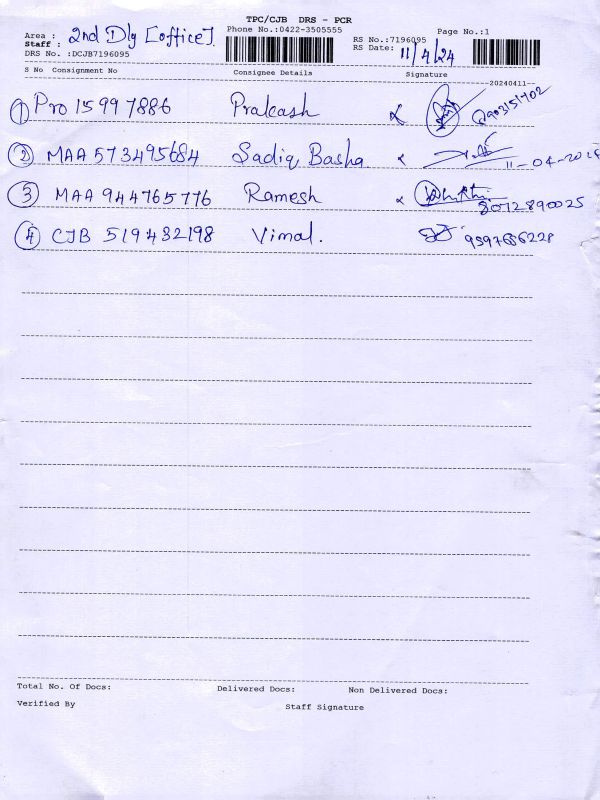 TPC/CJB DRS - PCR
Area : 2nd Dly [office]. Phone No.:0422-3505555 Page No.:1
Staff : RS No.:7196095
DRS No. :DCJB7196095 RS Date: 11/4/24
S No Consignment No Consignee Details Signature
--20240411--
1 Pro 15997886 Prakash
2 MAA 573495684 Sadiq Basha 11-04-202
3 MAA 944765776 Ramesh 8012890025
4 CJB 519432198 Vimal.
Total No. Of Docs: Delivered Docs: Non Delivered Docs:
Verified By Staff Signature